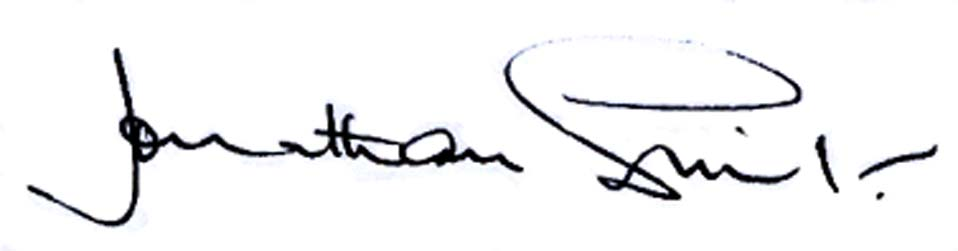 Jonathan Smith